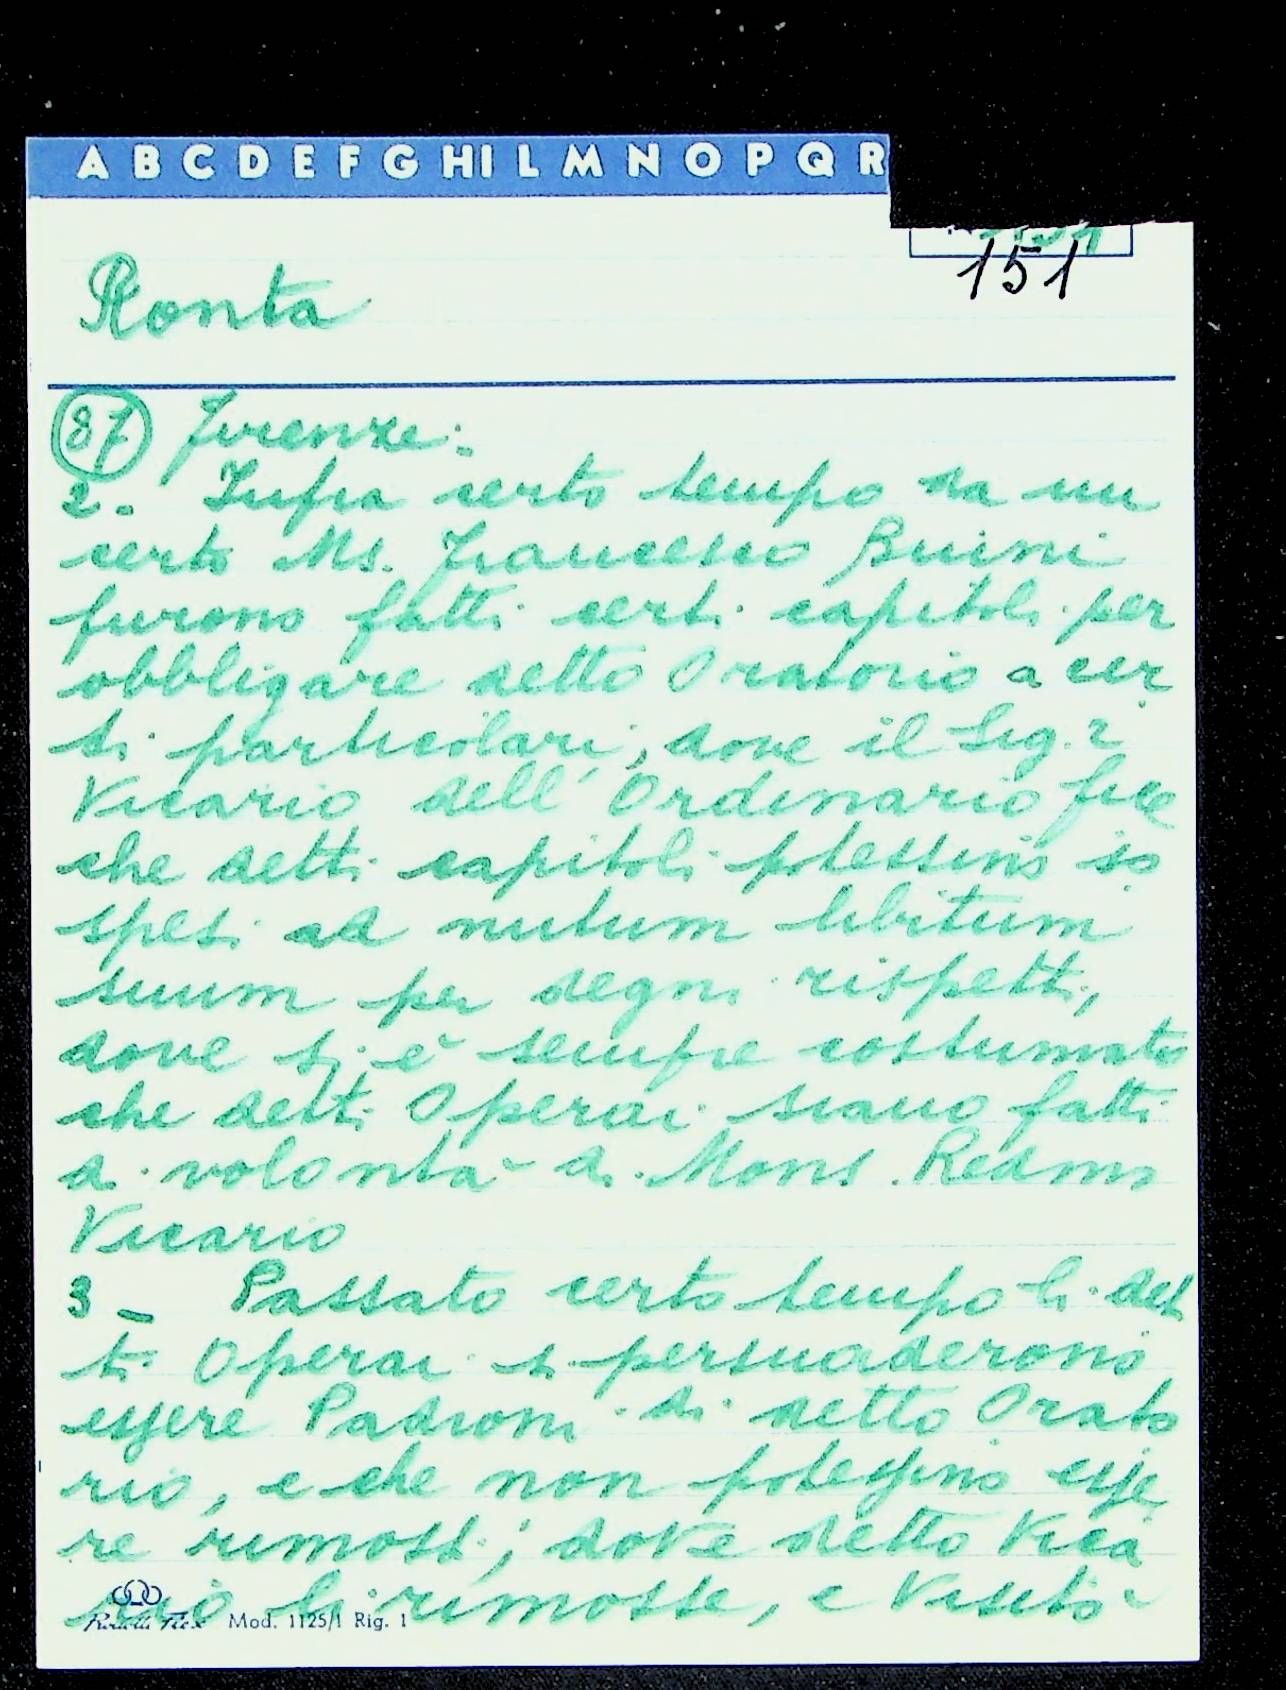 A B C D E F G H I L M N O P Q R
151
Ronta
87 Firenze:
2. Infra certo tempo da un
certo Ms. Francesco Buini
furono fatti certi capitoli per
obbligare detto Oratorio a cer
ti particolari, dove il Sig.r
Vicario dell'Ordinario fece
che detti capitoli potessino so
spesi ad nutum libitum
suum per degni rispetti,
dove si è sempre costumato
che detti Operai siano fatti
a volontà di Mons. Redmo
Vicario
3 - Passato certo tempo li det
ti Operai si persuaderono
essere Padroni di detto Orato
rio, e che non potessino esse
re rimossi; dove detto Vica
rio li rimosse, e Visitò
Mod. 1125/1 Rig. 1